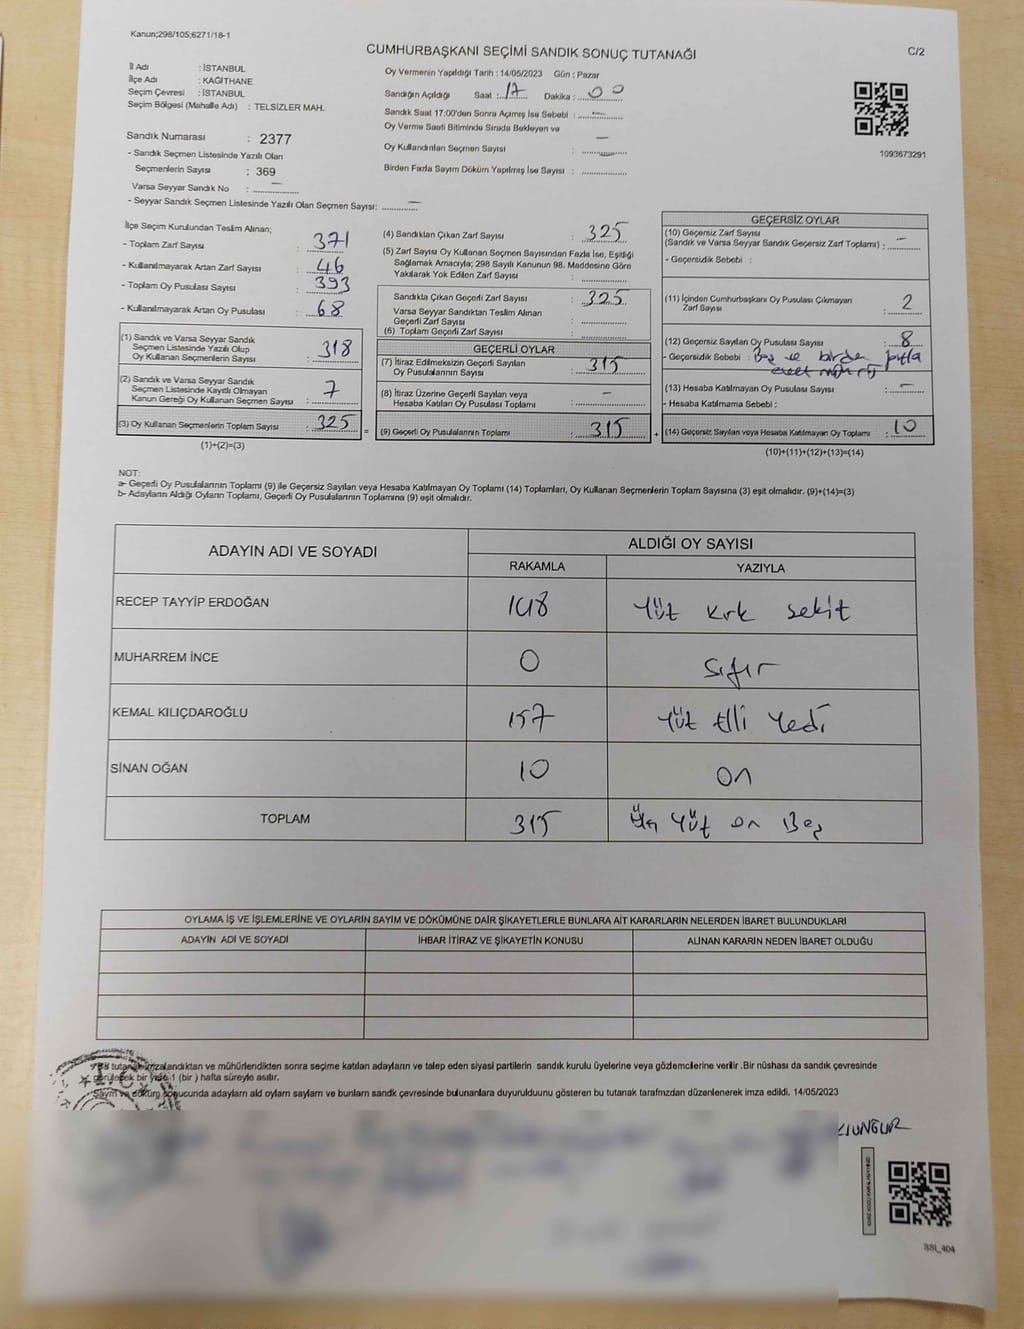 Kanun;298/105;6271/18-1
CUMHURBAŞKANI SEÇİMİ SANDIK SONUÇ TUTANAĞI
C/2
İl Adı : İSTANBUL
İlçe Adı : KAĞITHANE
Seçim Çevresi : İSTANBUL
Seçim Bölgesi (Mahalle Adı) : TELSİZLER MAH.
Sandık Numarası : 2377
- Sandık Seçmen Listesinde Yazılı Olan
Seçmenlerin Sayısı : 369
Varsa Seyyar Sandık No : –
- Seyyar Sandık Seçmen Listesinde Yazılı Olan Seçmen Sayısı: –
Oy Vermenin Yapıldığı Tarih : 14/05/2023 Gün : Pazar
Sandığın Açıldığı Saat : 17 Dakika : 00
Sandık Saat 17:00'den Sonra Açımış İse Sebebi : –
Oy Verme Saati Bitiminde Sırada Bekleyen ve
Oy Kullandırılan Seçmen Sayısı : –
Birden Fazla Sayım Döküm Yapılmış İse Sayısı :
1093673291
İlçe Seçim Kurulundan Teslim Alınan;
- Toplam Zarf Sayısı : 371
- Kullanılmayarak Artan Zarf Sayısı : 46
- Toplam Oy Pusulası Sayısı : 393
- Kullanılmayarak Artan Oy Pusulası : 68
(1) Sandık ve Varsa Seyyar Sandık
Seçmen Listesinde Yazılı Olup
Oy Kullanan Seçmenlerin Sayısı : 318
(2) Sandık ve Varsa Seyyar Sandık
Seçmen Listesinde Kayıtlı Olmayan
Kanun Gereği Oy Kullanan Seçmen Sayısı : 7
(3) Oy Kullanan Seçmenlerin Toplam Sayısı : 325
(1)+(2)=(3)
=
(4) Sandıktan Çıkan Zarf Sayısı : 325
(5) Zarf Sayısı Oy Kullanan Seçmen Sayısından Fazla İse, Eşitliği
Sağlamak Amacıyla; 298 Sayılı Kanunun 98. Maddesine Göre
Yakılarak Yok Edilen Zarf Sayısı :
Sandıkta Çıkan Geçerli Zarf Sayısı : 325
Varsa Seyyar Sandıktan Teslim Alınan
Geçerli Zarf Sayısı :
(6) Toplam Geçerli Zarf Sayısı :
GEÇERLİ OYLAR
(7) İtiraz Edilmeksizin Geçerli Sayılan
Oy Pusulalarının Sayısı : 315
(8) İtiraz Üzerine Geçerli Sayılan veya
Hesaba Katılan Oy Pusulası Toplamı : –
(9) Geçerli Oy Pusulalarının Toplamı : 315
+
GEÇERSİZ OYLAR
(10) Geçersiz Zarf Sayısı
(Sandık ve Varsa Seyyar Sandık Geçersiz Zarf Toplamı) : –
- Geçersizlik Sebebi :
(11) İçinden Cumhurbaşkanı Oy Pusulası Çıkmayan
Zarf Sayısı : 2
(12) Geçersiz Sayılan Oy Pusulası Sayısı : 8
- Geçersizlik Sebebi : Boş ve birden fazla
(13) Hesaba Katılmayan Oy Pusulası Sayısı : –
- Hesaba Katılmama Sebebi :
(14) Geçersiz Sayılan veya Hesaba Katılmayan Oy Toplamı : 10
(10)+(11)+(12)+(13)=(14)
NOT:
a- Geçerli Oy Pusulalarının Toplamı (9) ile Geçersiz Sayılan veya Hesaba Katılmayan Oy Toplamı (14) Toplamları, Oy Kullanan Seçmenlerin Toplam Sayısına (3) eşit olmalıdır. (9)+(14)=(3)
b- Adayların Aldığı Oyların Toplamı, Geçerli Oy Pusulalarının Toplamına (9) eşit olmalıdır.
ADAYIN ADI VE SOYADI
ALDIĞI OY SAYISI
RAKAMLA YAZIYLA
RECEP TAYYİP ERDOĞAN 148 Yüz kırk sekiz
MUHARREM İNCE 0 Sıfır
KEMAL KILIÇDAROĞLU 157 Yüz Elli Yedi
SİNAN OĞAN 10 On
TOPLAM 315 Üç Yüz on Beş
OYLAMA İŞ VE İŞLEMLERİNE VE OYLARIN SAYIM VE DÖKÜMÜNE DAİR ŞİKAYETLERLE BUNLARA AİT KARARLARIN NELERDEN İBARET BULUNDUKLARI
ADAYIN ADI VE SOYADI İHBAR İTİRAZ VE ŞİKAYETİN KONUSU ALINAN KARARIN NEDEN İBARET OLDUĞU
zalandıktan ve mühürlendikten sonra seçime katılan adayların ve talep eden siyasi partilerin sandık kurulu üyelerine veya gözlemcilerine verilir .Bir nüshası da sandık çevresinde
bir yere 1 (bir ) hafta süreyle asılır.
ucunda adayların ald oyların sayların ve bunların sandk çevresinde bulunanlara duyurulduunu gösteren bu tutanak tarafmzdan düzenlenerek imza edildi. 14/05/2023
SSI_404